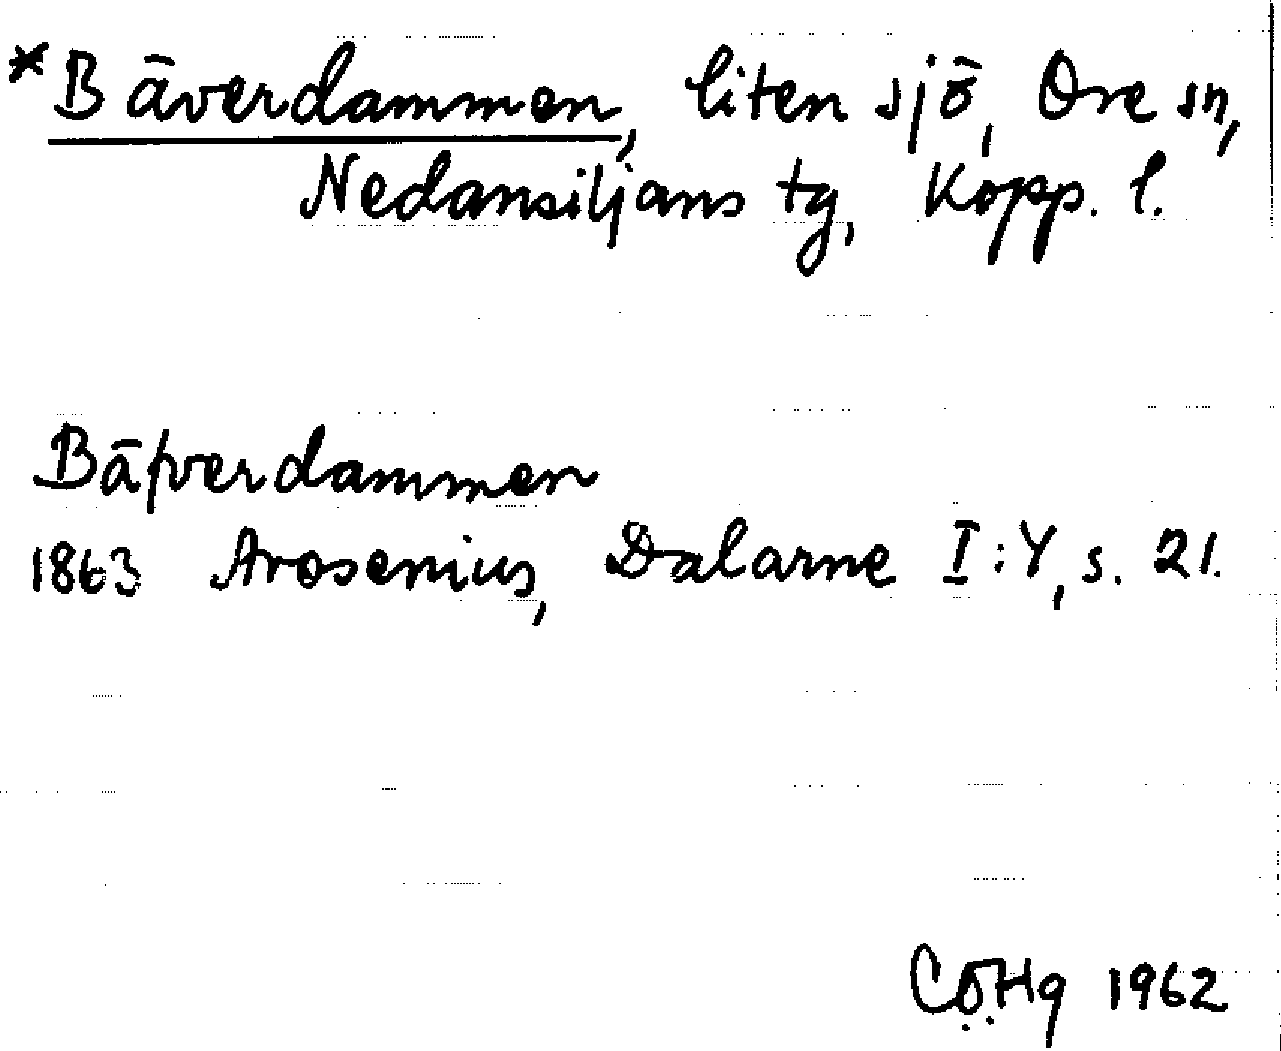 *Bäverdammen, liten sjö, Ore sn,
Nedansiljans tg, Kopp. l.
Bäfverdammen
1863 Arosenius, Dalarne I:Y, s. 21.
CÖHg 1962